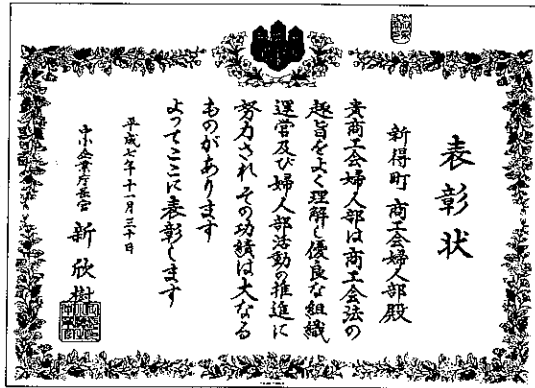 表彰状
新得町商工会婦人部殿
貴商工会婦人部は商工会法の
趣旨をよく理解し優良な組織
運営及び婦人部活動の推進に
努力されその功績は大なる
ものがあります
よってここに表彰します
平成七年十一月三十日
中小企業庁長官 新欣樹